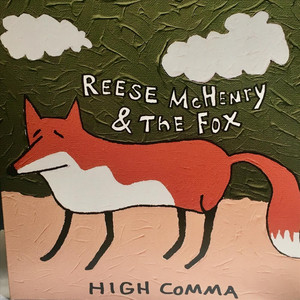 REESE McHENRY
& THE FOX
HIGH COMMA